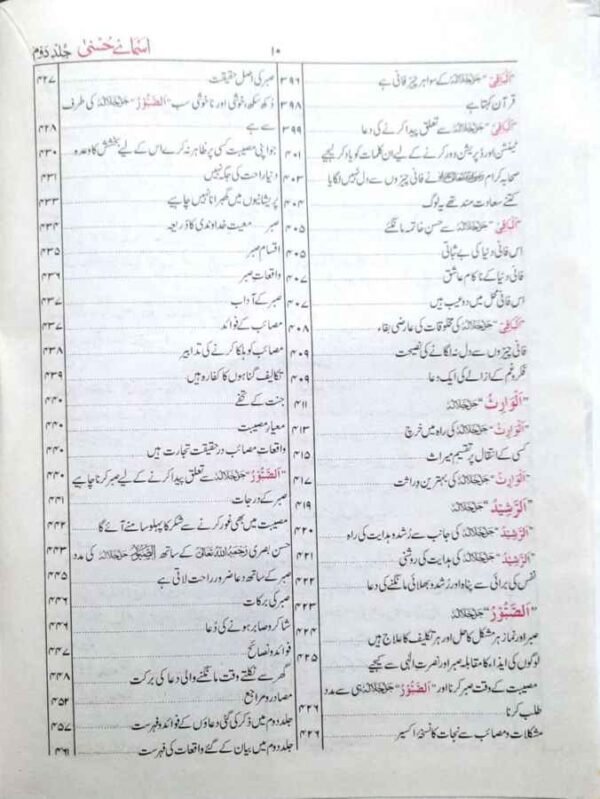 اسمائے حُسنیٰ جلد دوم
۱۰
"اَلْبَاقِیْ" جل جلالہ کے سوا ہر چیز فانی ہے ۳۹۶
قرآن کہتا ہے ۳۹۸
"اَلْبَاقِیْ" جل جلالہ سے تعلق پیدا کرنے کی دعا ۳۹۹
ٹینشن اور ڈپریشن دور کرنے کے لیے ان کلمات کو یاد کر لیجیے ۴۰۱
صحابہ کرام نے فانی چیزوں سے دل نہیں لگایا ۴۰۳
کتنے سعادت مند تھے یہ لوگ ۴۰۴
"اَلْبَاقِیْ" جل جلالہ سے حسن خاتمہ مانگئے ۴۰۵
اس فانی دنیا کی بے ثباتی ۴۰۵
فانی دنیا کے ناکام عاشق ۴۰۷
اس فانی محل میں دو عیب ہیں ۴۰۷
"اَلْبَاقِیْ" جل جلالہ کی مخلوقات کی عارضی بقاء ۴۰۸
فانی چیزوں سے دل نہ لگانے کی نصیحت ۴۰۹
فکر و غم کے ازالے کی ایک دعا ۴۰۹
"اَلْوَارِثُ" جل جلالہ ۴۱۱
"اَلْوَارِثُ" جل جلالہ کی راہ میں خرچ ۴۱۳
کسی کے انتقال پر تقسیم میراث ۴۱۵
"اَلْوَارِثُ" جل جلالہ کی بہترین وراثت ۴۱۷
"اَلرَّشِیْدُ" جل جلالہ ۴۱۹
"اَلرَّشِیْدُ" جل جلالہ کی جانب سے رُشد و ہدایت کی راہ ۴۲۰
"اَلرَّشِیْدُ" جل جلالہ کی ہدایت کی روشنی ۴۲۱
نفس کی برائی سے پناہ اور رُشد و بھلائی مانگنے کی دعا ۴۲۲
"اَلصَّبُوْرُ" جل جلالہ ۴۲۳
صبر اور نماز ہر مشکل کا حل اور ہر تکلیف کا علاج ہیں ۴۲۴
لوگوں کی ایذاء کا مقابلہ صبر اور نصرتِ الٰہی سے کیجیے ۴۲۵
مصیبت کے وقت صبر کرنا اور "اَلصَّبُوْرُ" جل جلالہ ہی سے مدد
طلب کرنا ۴۲۶
مشکلات و مصائب سے نجات کا نسخۂ اکسیر ۴۲۶
صبر کی اصل حقیقت ۴۲۷
دُکھ سکھ، خوشی اور ناخوشی سب "اَلصَّبُوْرُ" جل جلالہ کی طرف
سے ہے ۴۲۸
جو اپنی مصیبت کسی پر ظاہر نہ کرے اس کے لیے بخشش کا وعدہ ۴۳۰
دنیا راحت کی جگہ نہیں ۴۳۱
پریشانیوں میں گھبرانا نہیں چاہیے ۴۳۳
صبر معیتِ خداوندی کا ذریعہ ۴۳۴
اقسامِ صبر ۴۳۵
واقعاتِ صبر ۴۳۶
صبر کے آداب ۴۳۷
مصائب کے فوائد ۴۳۷
مصائب کو ہلکا کرنے کی تدابیر ۴۳۸
تکالیف گناہوں کا کفارہ ہیں ۴۳۹
جنت کے تحفے ۴۴۰
معیارِ مصیبت ۴۴۰
واقعاتِ مصائب در حقیقت تجارت ہیں ۴۴۰
"اَلصَّبُوْرُ" جل جلالہ سے تعلق پیدا کرنے کے لیے صبر کرنا چاہیے
صبر کے درجات ۴۴۱
مصیبت میں بھی غور کرنے سے شکر کا پہلو سامنے آئے گا ۴۴۲
حسن بصری رحمہ اللہ تعالیٰ کے ساتھ اَلصَّبُوْرُ جل جلالہ کی مدد ۴۴۳
صبر کے ساتھ دعا ضرور راحت لاتی ہے ۴۴۵
صبر کی برکات ۴۴۶
شاکر و صابر ہونے کی دُعا ۴۴۶
فوائد و نصائح ۴۴۷
گھر سے نکلتے وقت مانگنے والی دعا کی برکت ۴۴۸
مصادر و مراجع ۴۵۲
جلد دوم میں ذکر کی گئی دعاؤں کے فوائد و فہرست ۴۵۷
جلد دوم میں بیان کے گئے واقعات کی فہرست ۴۶۱